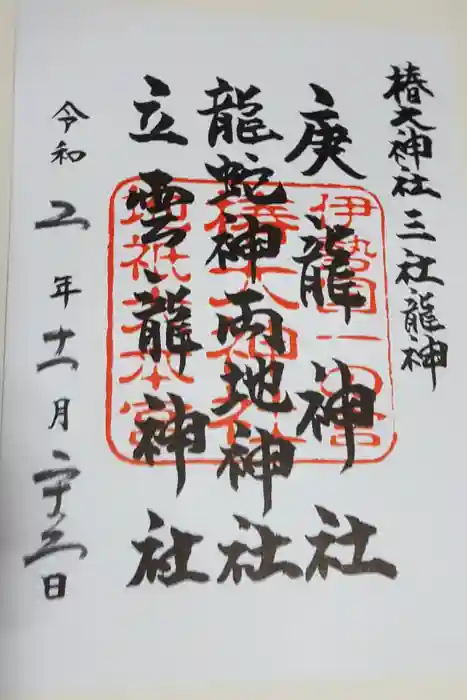 椿大神社 三社龍神
庚龍神社
龍蛇神両地神社
立雲龍神社
令和年十一月日
伊勢国一
椿大神社
地祇大本宮